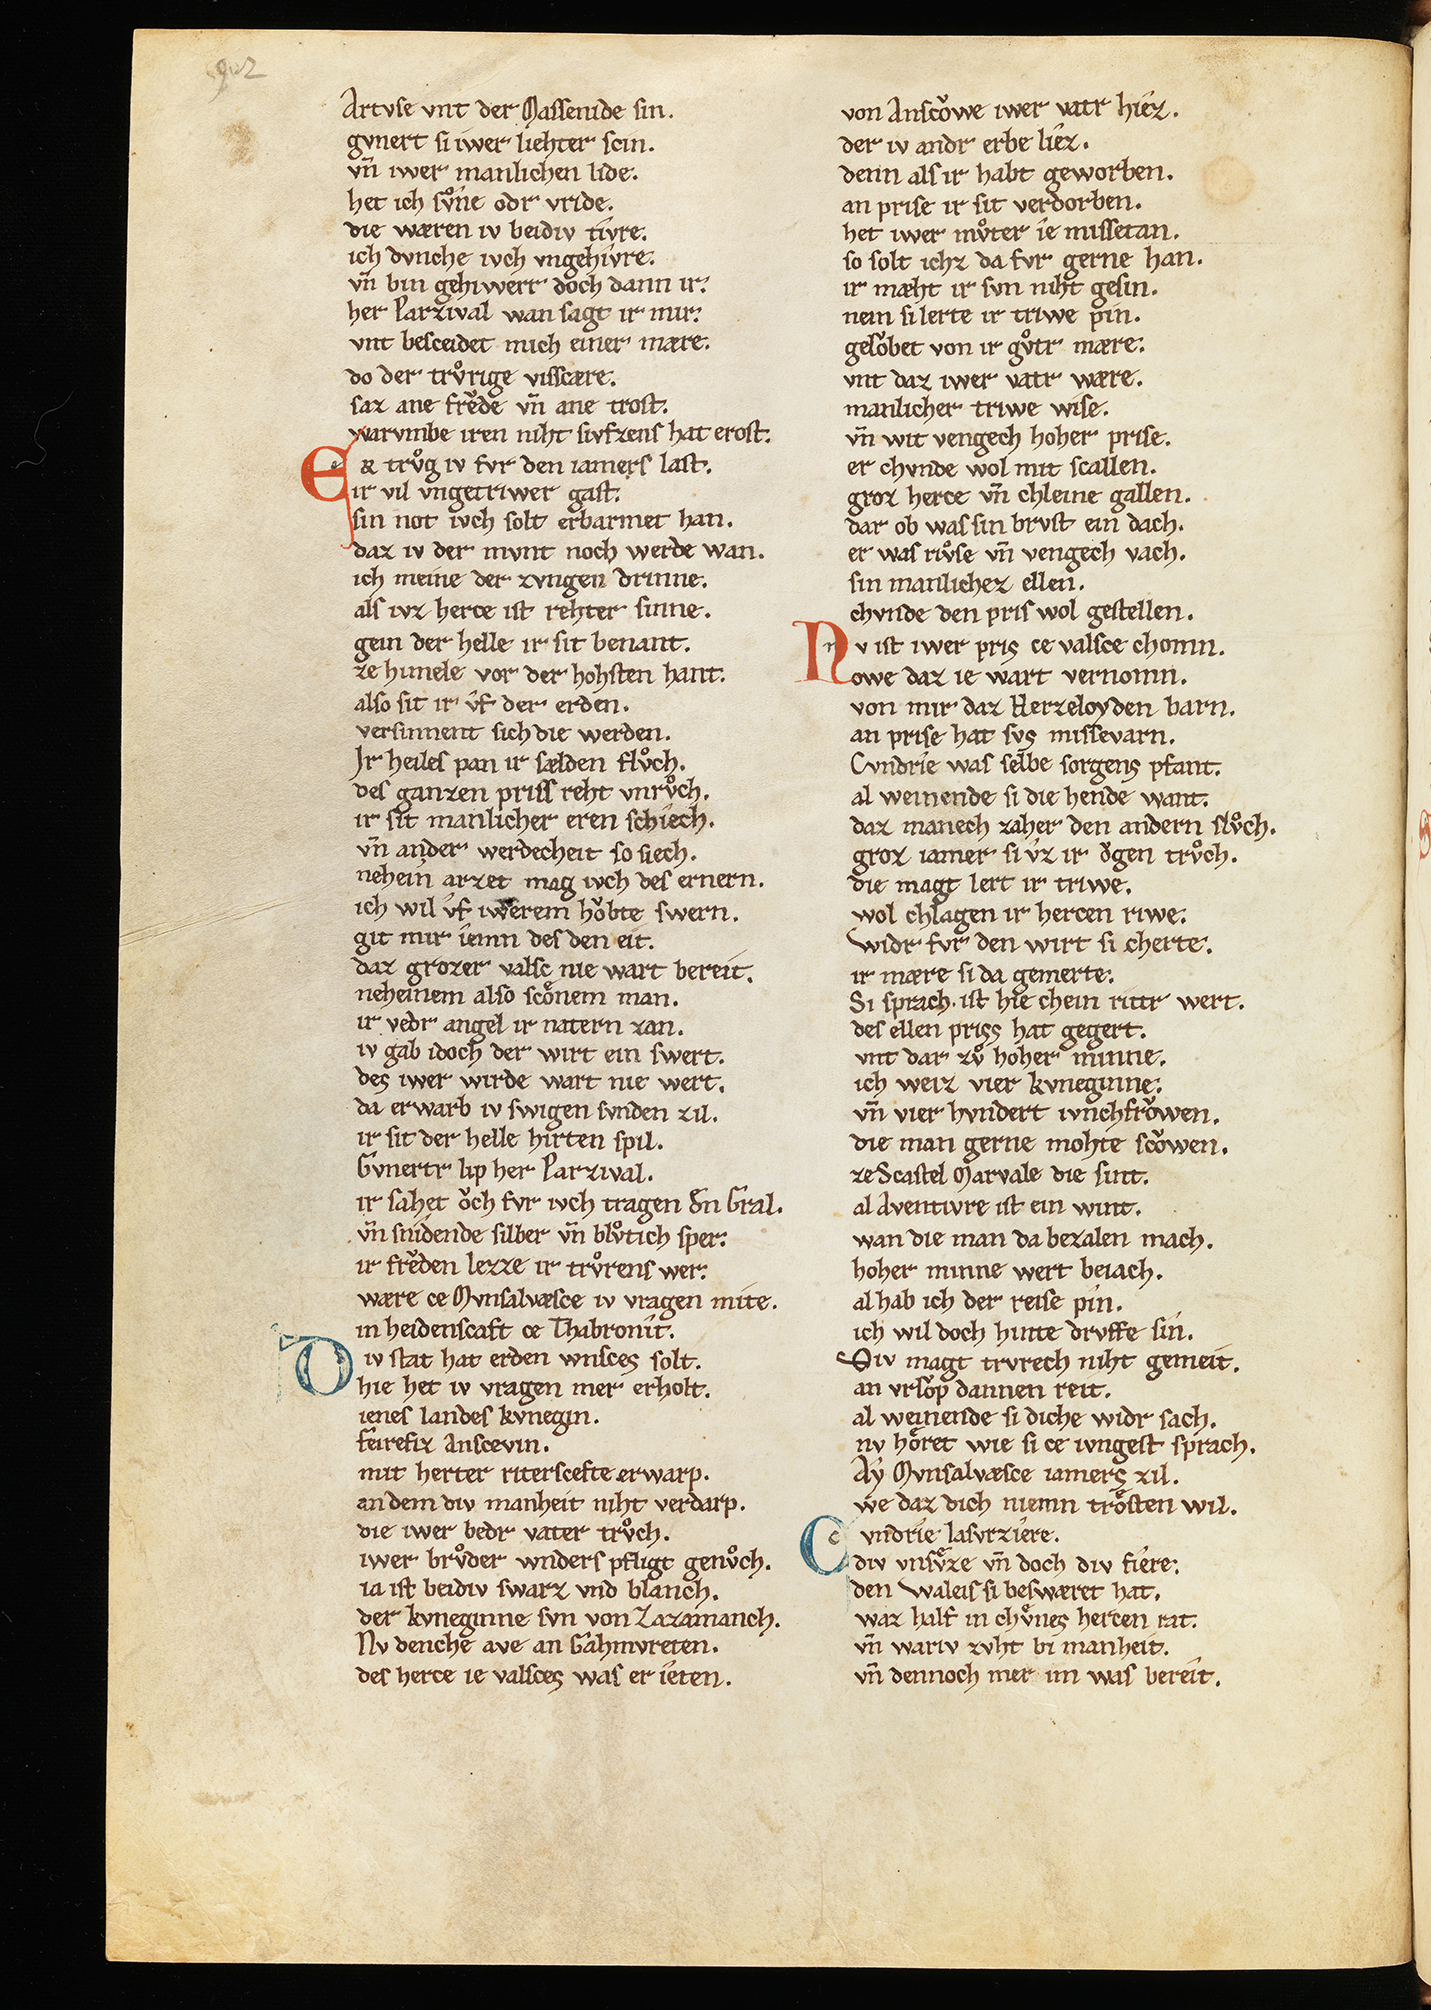 Artvse vnt der Massenide sin.
gvnert si iwer liehter scin.
vn̄ iwer manlichen lide.
het ich sv̊ne odr vride.
die wæren iv beidiv tivre.
ich dvnche ivch vngehivre.
vn̄ bin gehiwerr doch dann ir.
her Parzival wan sagt ir mir.
vnt besceidet mich einer mære.
do der trv̊rige visscære.
saz ane frev̊de vn̄ ane trost.
warvmbe iren niht sivfzens hat erost.
Er trv̊g iv fvr den iamers last.
ir vil vngetriwer gast.
sin not ivch solt erbarmet han.
daz iv der mvnt noch werde wan.
ich meine der zvngen drinne.
als ivz herce ist rehter sinne.
gein der helle ir sit benant.
ze himele vor der hohsten hant.
also sit ir v̂f der erden.
versinnent sich die werden.
Ir heiles pan ir sælden flv̊ch.
des ganzen priss reht vnrv̊ch.
ir sit manlicher eren schiech.
vn̄ ander werdecheit so siech.
nehein arzet mag ivch des ernern.
ich wil v̂f iwerem hov̊bte swern.
git mir iemn des den eit.
daz grozer valsc nie wart bereit.
neheinem also scônem man.
ir vedr angel ir natern zan.
iv gab idoch der wirt ein swert.
des iwer wirde wart nie wert.
da erwarb iv swigen svnden zil.
ir sit der helle hirten spil.
Gvnertr lip her Parzival.
ir sahet ov̊ch fvr ivch tragen dn̄ Gral.
vn̄ snidende silber vn̄ blv̊tich sper.
ir frev̊den lezze ir trv̊rens wer.
wære ce Mvnsalvæsce iv vragen mite.
in heidenscaft ce Thabronit.
Div stat hat erden wnsces solt.
hie het iv vragen mer erholt.
ienes landes kvnegin.
feirefiz Anscevin.
mit herter riterscefte erwarp.
an dem div manheit niht verdarp.
die iwer bedr vater trv̊ch.
iwer brv̊der wnders pfligt genv̊ch.
ia ist beidiv swarz vnd blanch.
der kvneginne svn von Zazamanch.
Nv denche ave an Gahmvreten.
des herce ie valsces was er ieten.
von Anscov̊we iwer vatr hiez.
der iv andr erbe liez.
denn als ir habt geworben.
an prise ir sit verdorben.
het iwer mv̊ter ie missetan.
so solt ichz da fvr gerne han.
ir mæht ir svn niht gesin.
nein si lerte ir triwe pin.
gelov̊bet von ir gv̊tr mære.
vnt daz iwer vatr wære.
manlicher triwe wise.
vn̄ wit vengech hoher prise.
er chvnde wol mit scallen.
groz herce vn̄ chleine gallen.
dar ob was sin brvst ein dach.
er was riv̊se vn̄ vengech vach.
sin manlichez ellen.
chvnde den pris wol gestellen.
Nv ist iwer pris ce valsce chomn.
owe daz ie wart vernomn.
von mir daz Herzeloyden barn.
an prise hat svs missevarn.
Cvndrie was selbe sorgens pfant.
al weinende si die hende want.
daz manech zaher den andern slv̊ch.
groz iamer si v̂z ir ov̊gen trv̊ch.
die magt lert ir triwe.
wol chlagen ir hercen riwe.
widr fvr den wirt si cherte.
ir mære si da gemerte.
Si sprach. ist hie chein rittr wert.
des ellen priss hat gegert.
vnt dar zv̊ hoher minne.
ich weiz vier kvneginne.
vn̄ vier hvndert ivnchfrov̊wen.
die man gerne mohte scov̊wen.
ze Scastel Marvale die sint.
al Aventivre ist ein wint.
wan die man da bezalen mach.
hoher minne wert beiach.
al hab ich der reise pin.
ich wil doch hinte drvffe sin.
Div magt trvrech niht gemeit.
an vrlov̊p dannen reit.
al weinende si diche widr sach.
nv hôret wie si ce ivngest sprach.
Ay Mvnsalvæsce iamers zil.
we daz dich niemn trôsten wil.
Cvndrie lasvrziere.
div vnsv̊ze vn̄ doch div fiere.
den Waleis si beswæret hat.
waz half in chv̊nes hercen rat.
vn̄ wariv zvht bi manheit.
vn̄ dennoch mer im was bereit.